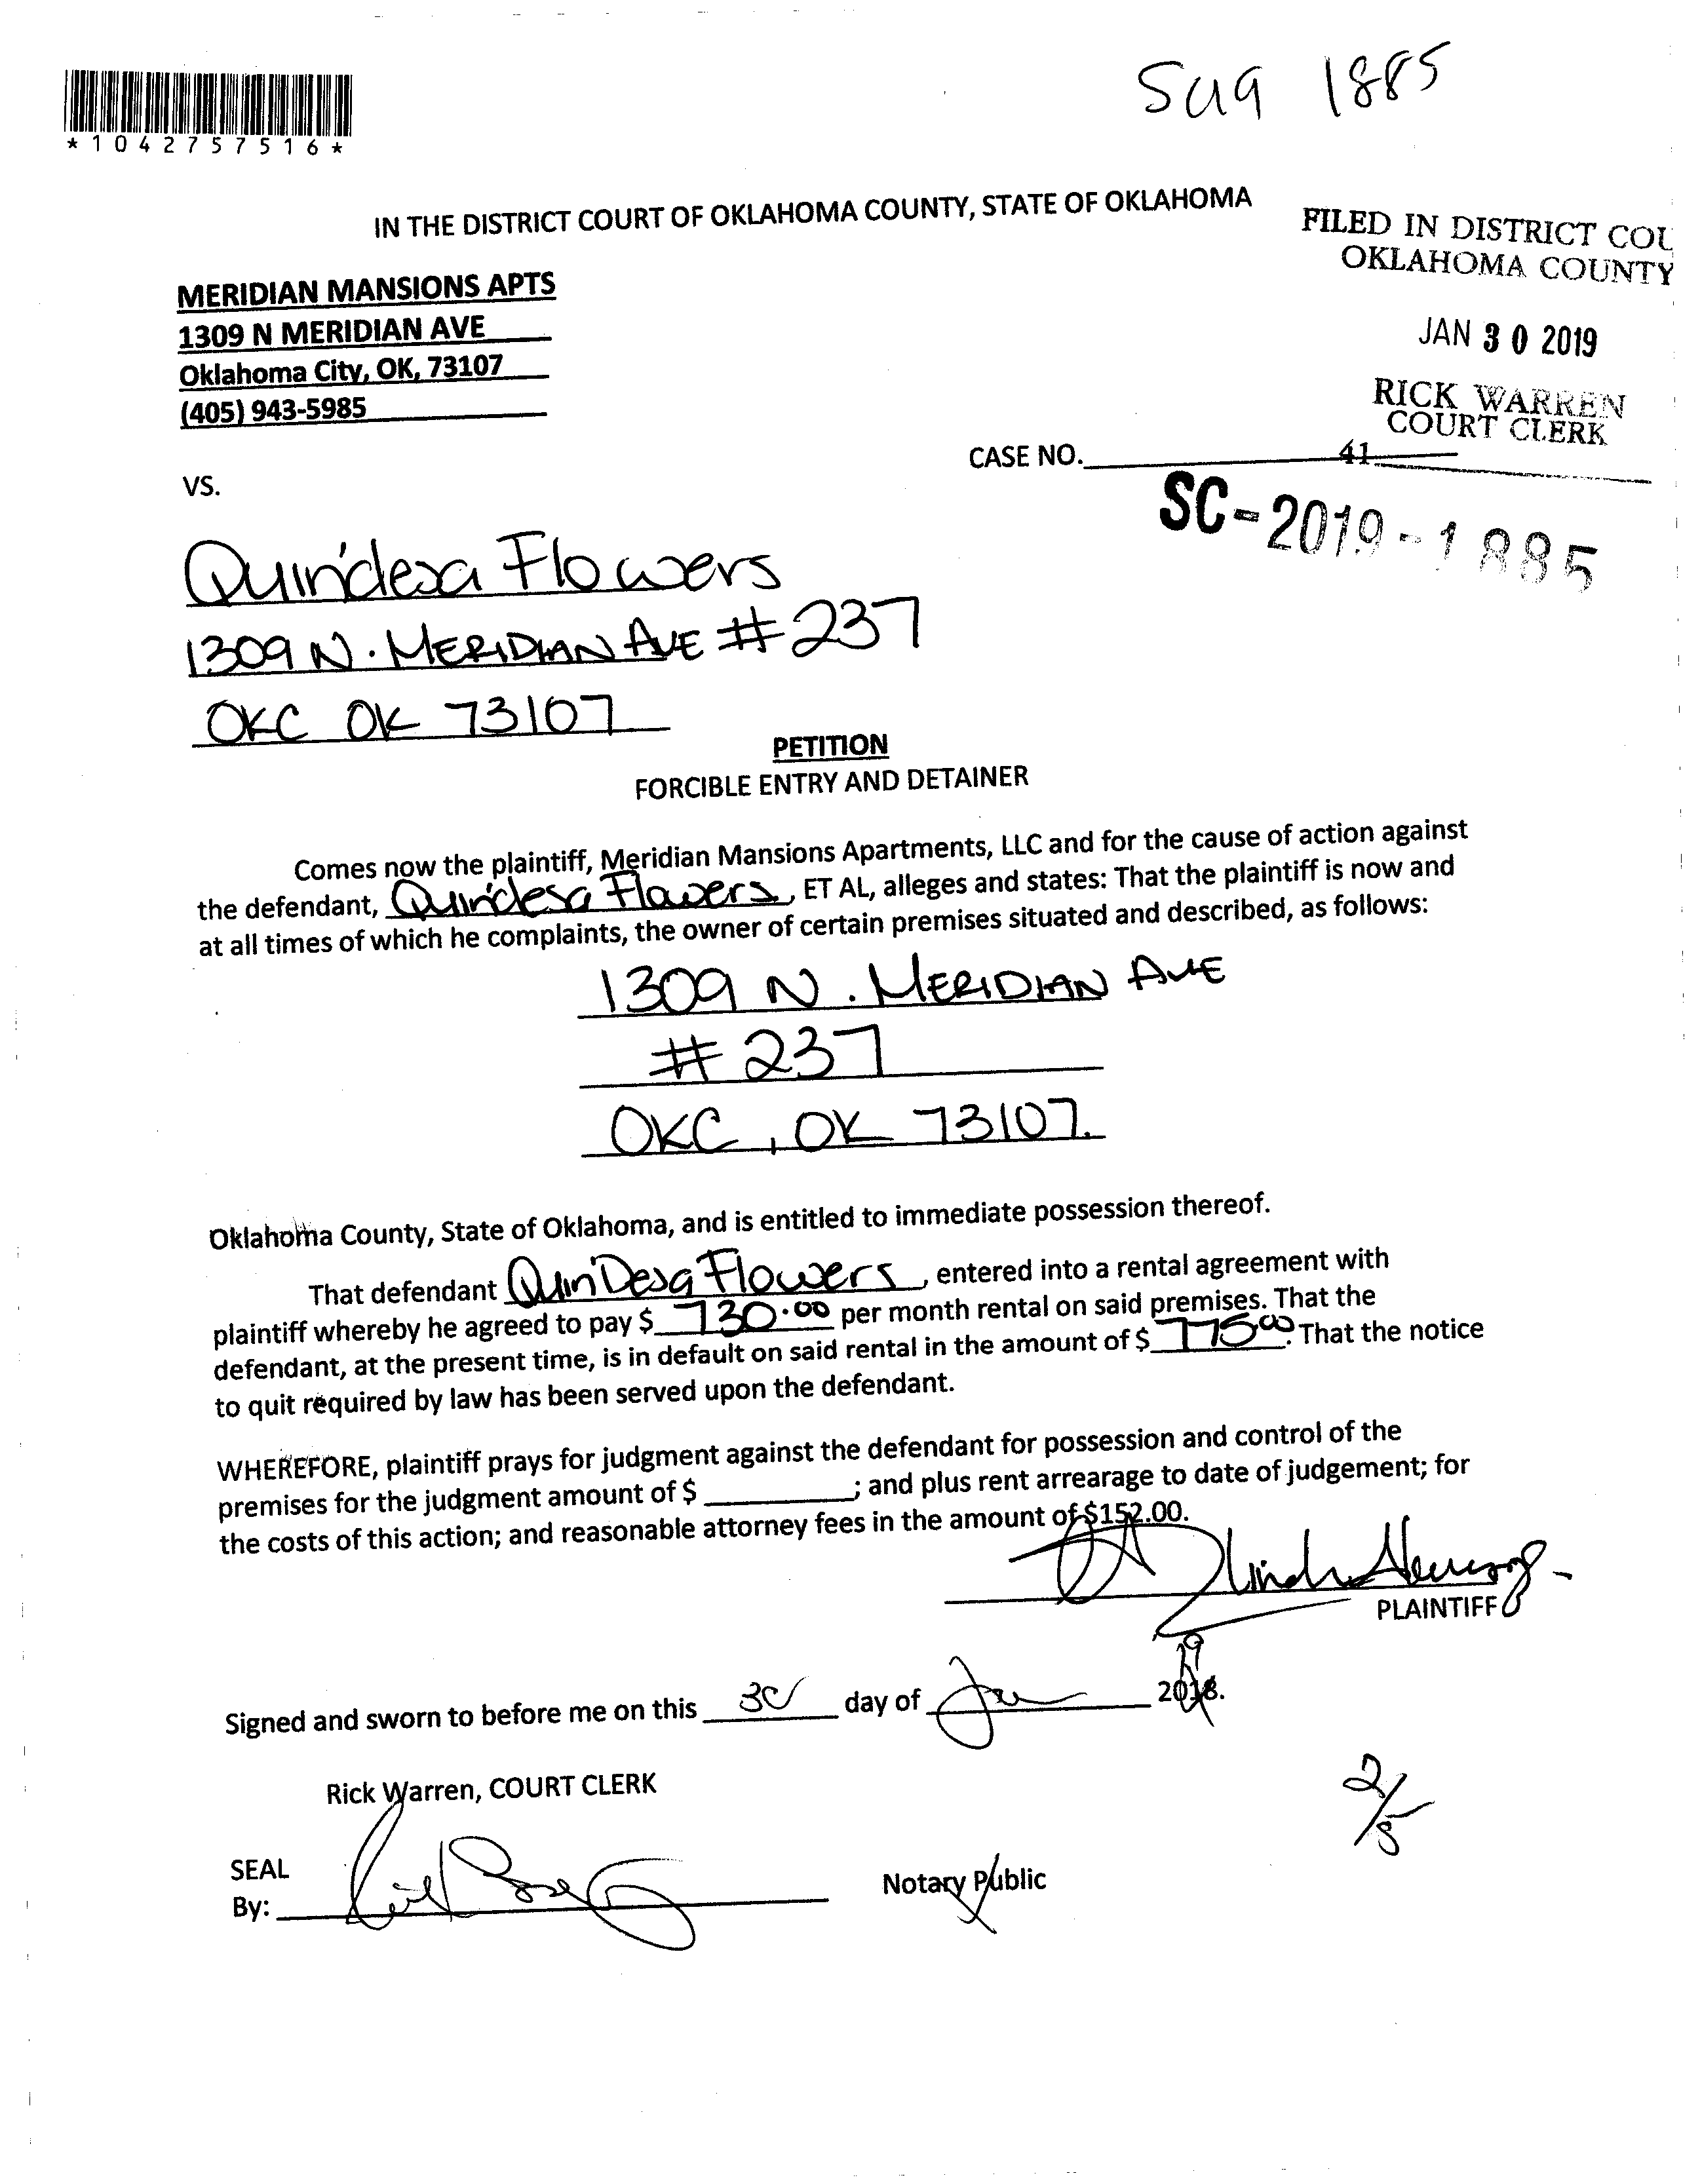 SC19 1885
*1042757516*
IN THE DISTRICT COURT OF OKLAHOMA COUNTY, STATE OF OKLAHOMA
FILED IN DISTRICT COU
OKLAHOMA COUNTY
JAN 30 2019
RICK WARREN
COURT CLERK
41
MERIDIAN MANSIONS APTS
1309 N MERIDIAN AVE
Oklahoma City, OK, 73107
(405) 943-5985
CASE NO.
SC-2019-1885
VS.
Quin'desa Flowers
1309 N. MERIDIAN AVE #237
OKC OK 73107
PETITION
FORCIBLE ENTRY AND DETAINER
Comes now the plaintiff, Meridian Mansions Apartments, LLC and for the cause of action against
the defendant, Quin'desa Flowers, ET AL, alleges and states: That the plaintiff is now and
at all times of which he complaints, the owner of certain premises situated and described, as follows:
1309 N. MERIDIAN AVE
#237
OKC, OK 73107.
Oklahoma County, State of Oklahoma, and is entitled to immediate possession thereof.
That defendant Quin'Desa Flowers, entered into a rental agreement with
plaintiff whereby he agreed to pay $ 730.00 per month rental on said premises. That the
defendant, at the present time, is in default on said rental in the amount of $ 775.00. That the notice
to quit required by law has been served upon the defendant.
WHEREFORE, plaintiff prays for judgment against the defendant for possession and control of the
premises for the judgment amount of $ ; and plus rent arrearage to date of judgement; for
the costs of this action; and reasonable attorney fees in the amount of $152.00.
PLAINTIFF
Signed and sworn to before me on this 30 day of Jan 2018. 19
Rick Warren, COURT CLERK
2/8
SEAL
By: Notary Public